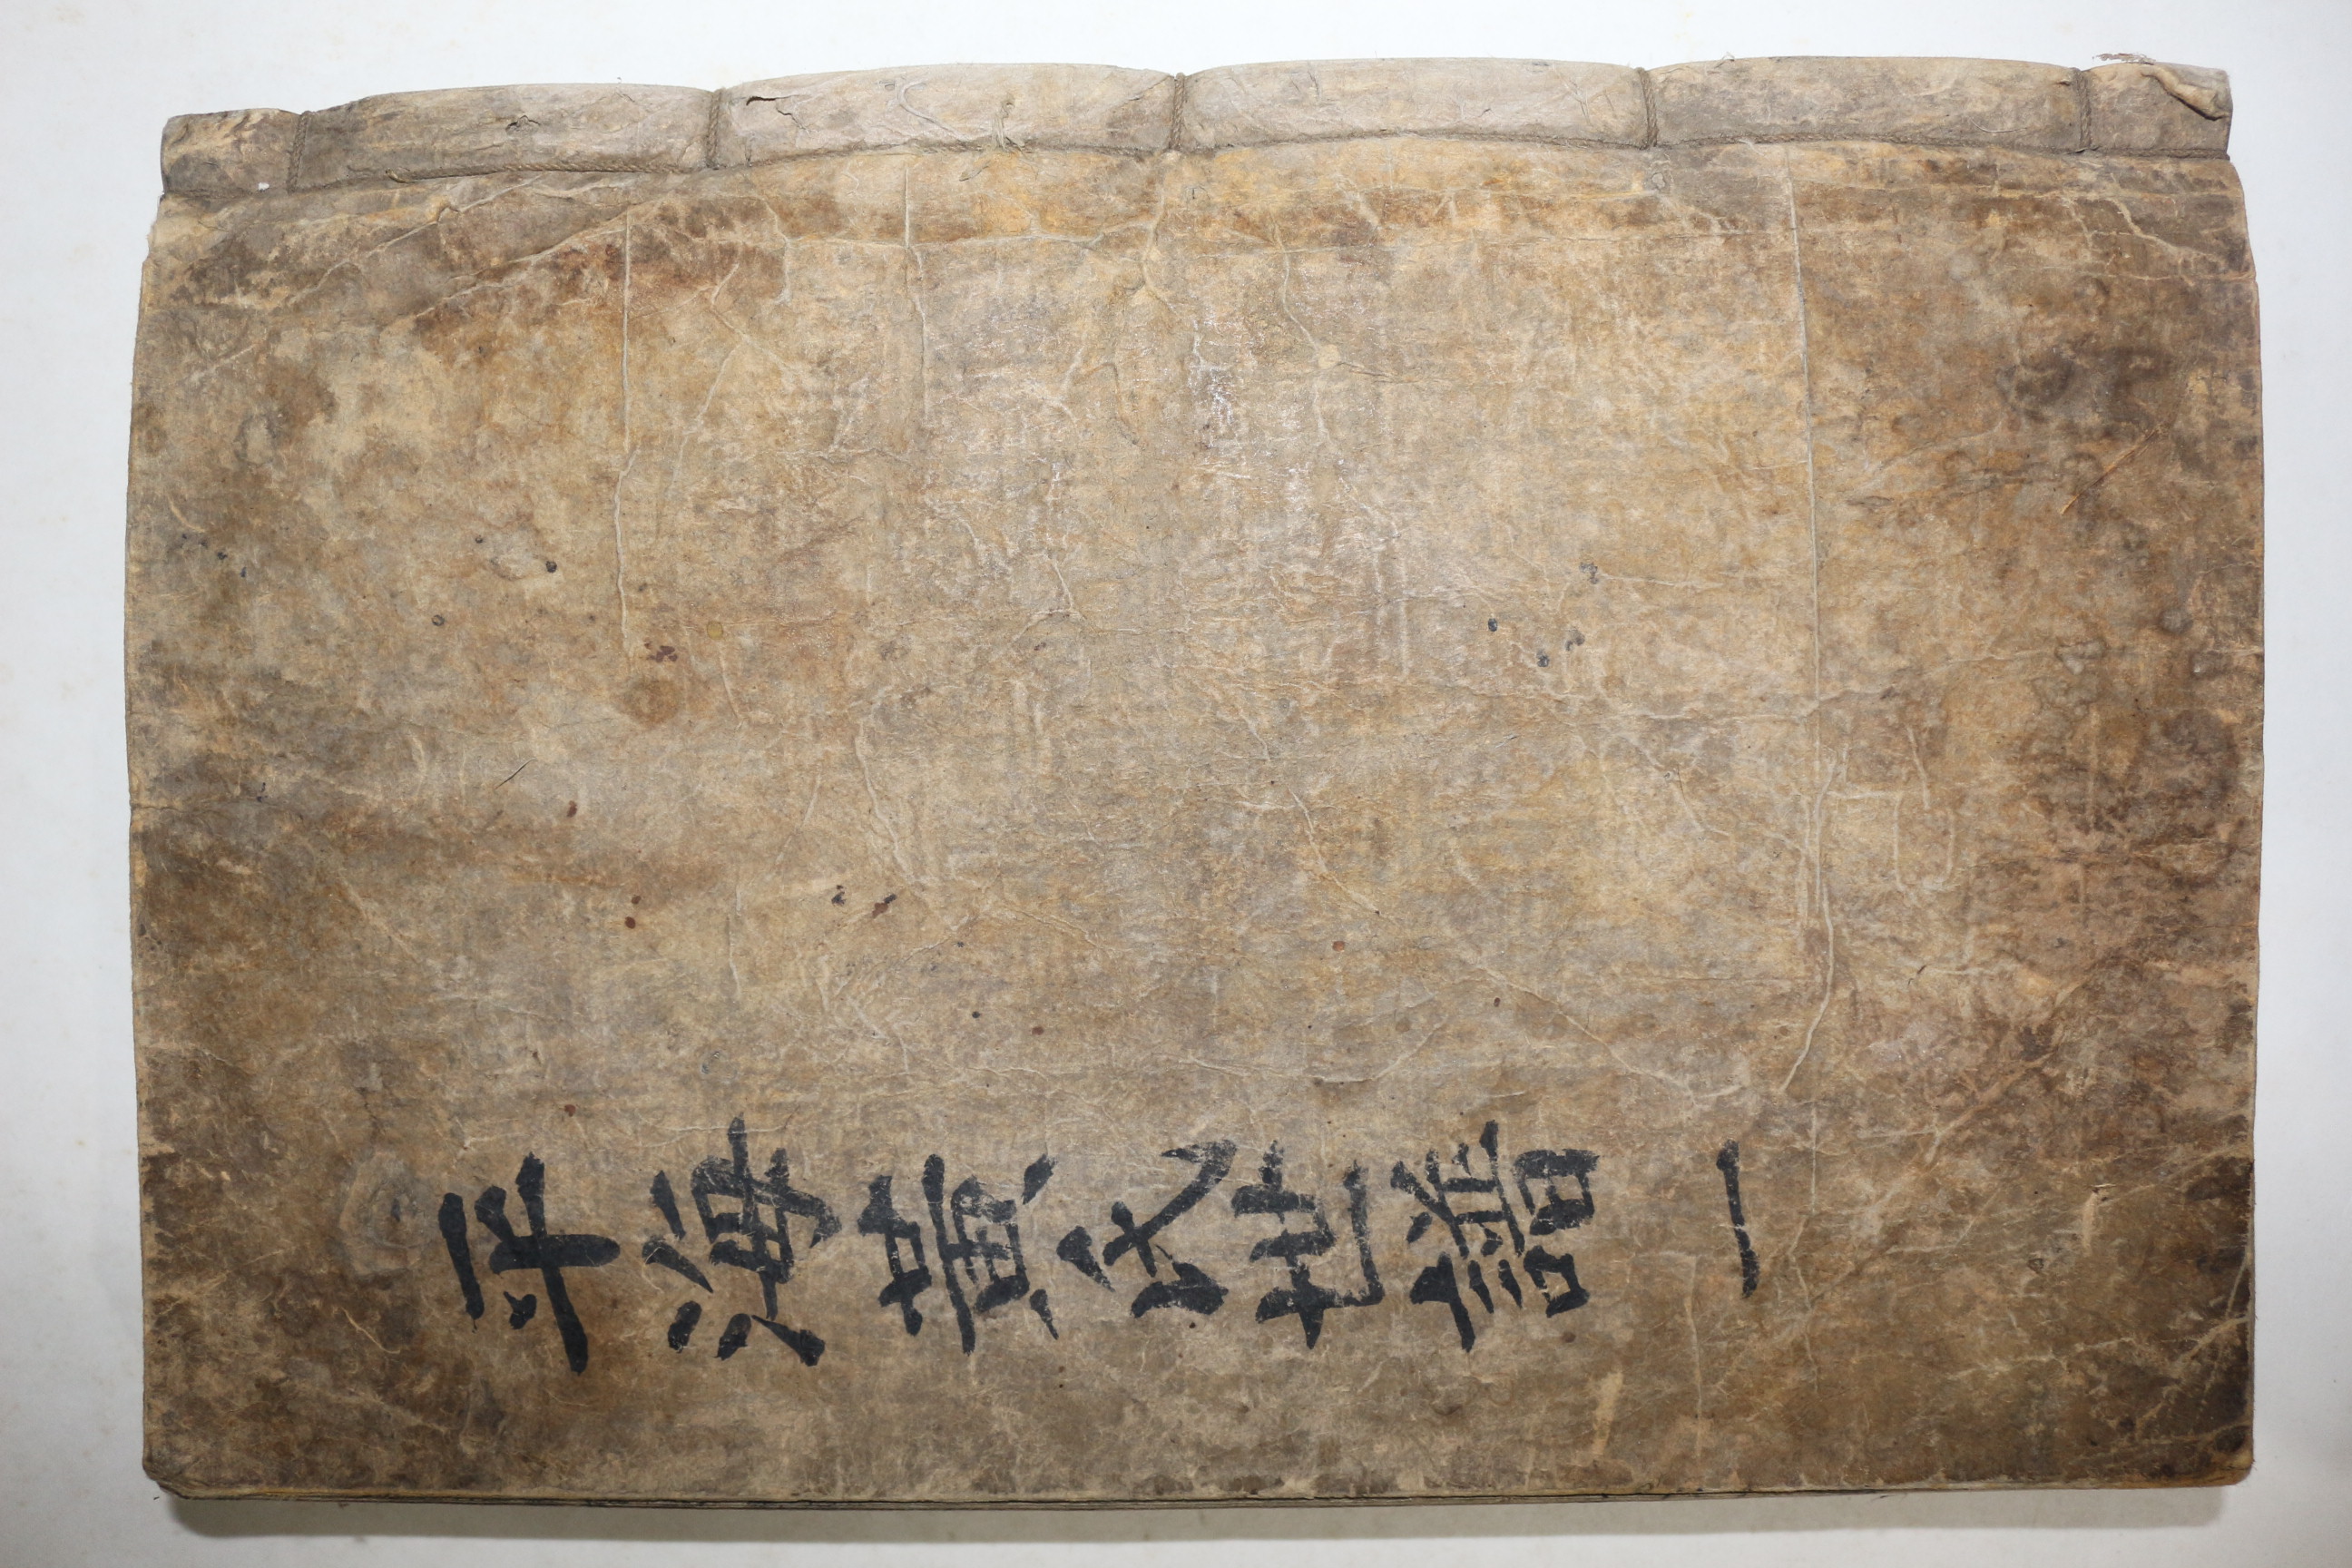 平海黃氏世譜 一